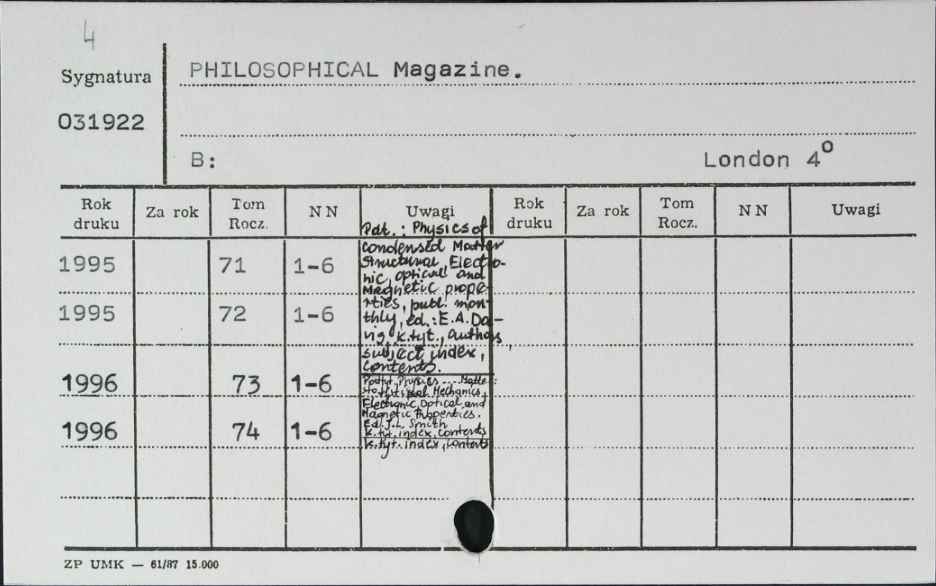 4
Sygnatura
PHILOSOPHICAL Magazine.
031922
B: London 4º
Rok druku Za rok Tom Rocz. NN Uwagi Rok druku Za rok Tom Rocz. NN Uwagi
Pdt.: Physics of
condensed Matter
Structural, Electro-
1995 71 1-6
nic, optical and
Magnetic prope-
rties, publ. mon-
1995 72 1-6
thly, ed.: E.A. Da-
vis k.tyt., authors,
subject index,
contents.
1996 73 1-6
Physics ... Matter:
Statistical Mechanics,
Electronic, Optical and
Magnetic Properties.
Ed. J.L. Smith
1996 74 1-6
k.tyt. index, contents
k.tyt. index, contents
ZP UMK — 61/87 15.000